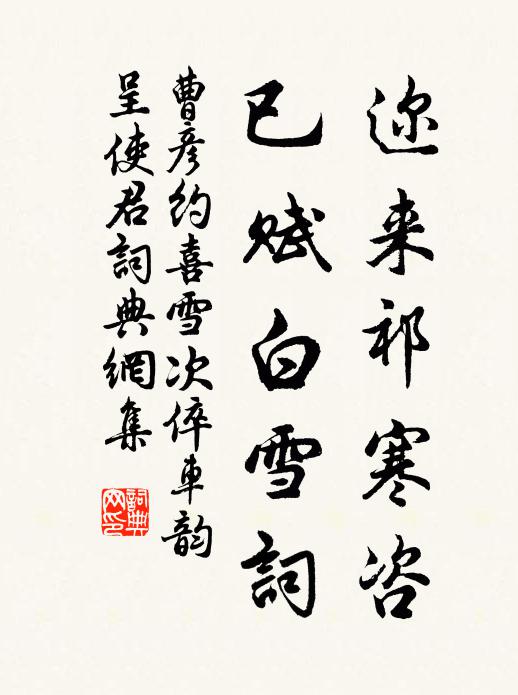 迩来祁寒咨
已赋白雪詞
曹彦约喜雪次倅車韵
呈使君詞典網集
詞典网印